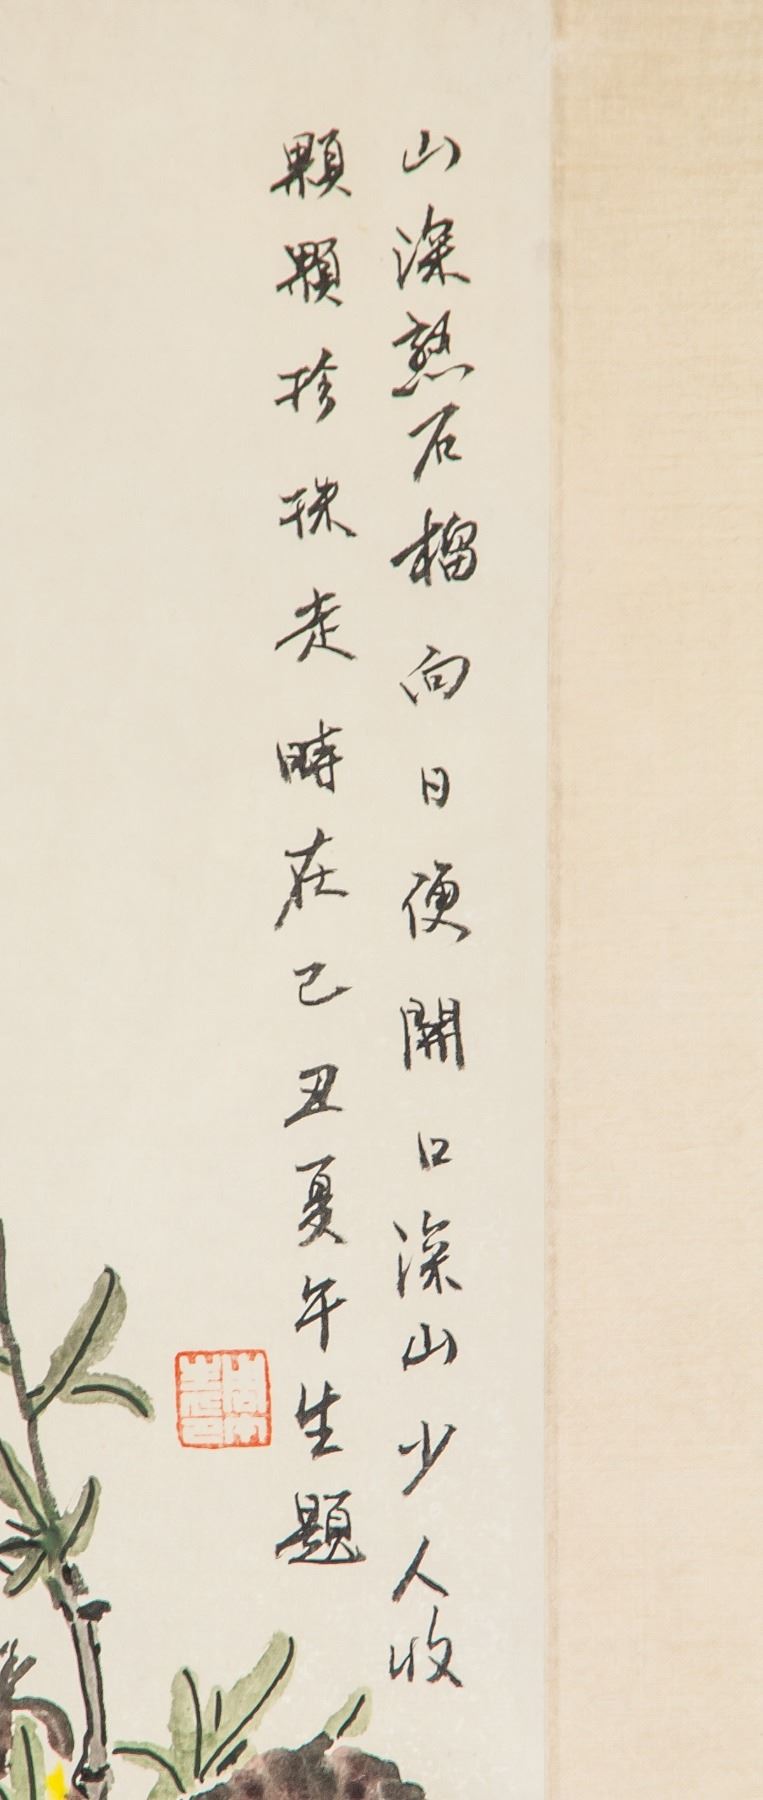 山深熟石榴向日便開口深山少人收
顆顆捡珠走時在己丑夏午生題